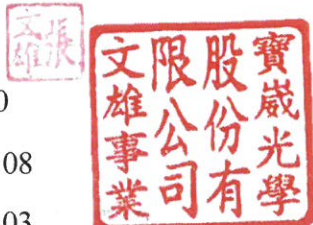 張
文雄
寶崴光學
股份有
限公司
文雄事業
0
08
03